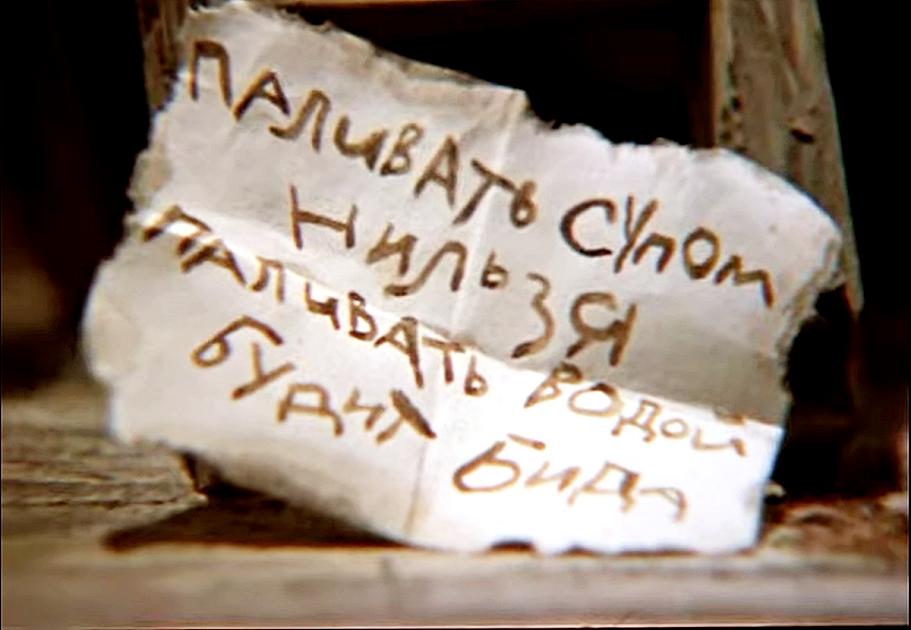 ПАЛИВАТЬ СУПОМ
НИЛЬЗЯ
ПАЛИВАТЬ ВОДОЙ
БУДИТ БИДА